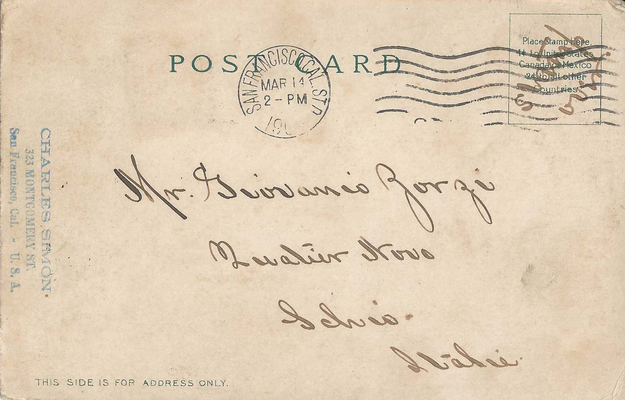 POST CARD
SAN FRANCISCO, CAL. STA
MAR 14
2 - PM
190
Place Stamp here
1¢ to United States
Canada, Mexico
2¢ to all other
Countries.
CHARLES SIMON.
323 MONTGOMERY ST.
San Francisco, Cal. - U. S. A.
Mr. Giovanio Zorzi
Quatiir Novo
Schio
Italie.
THIS SIDE IS FOR ADDRESS ONLY.